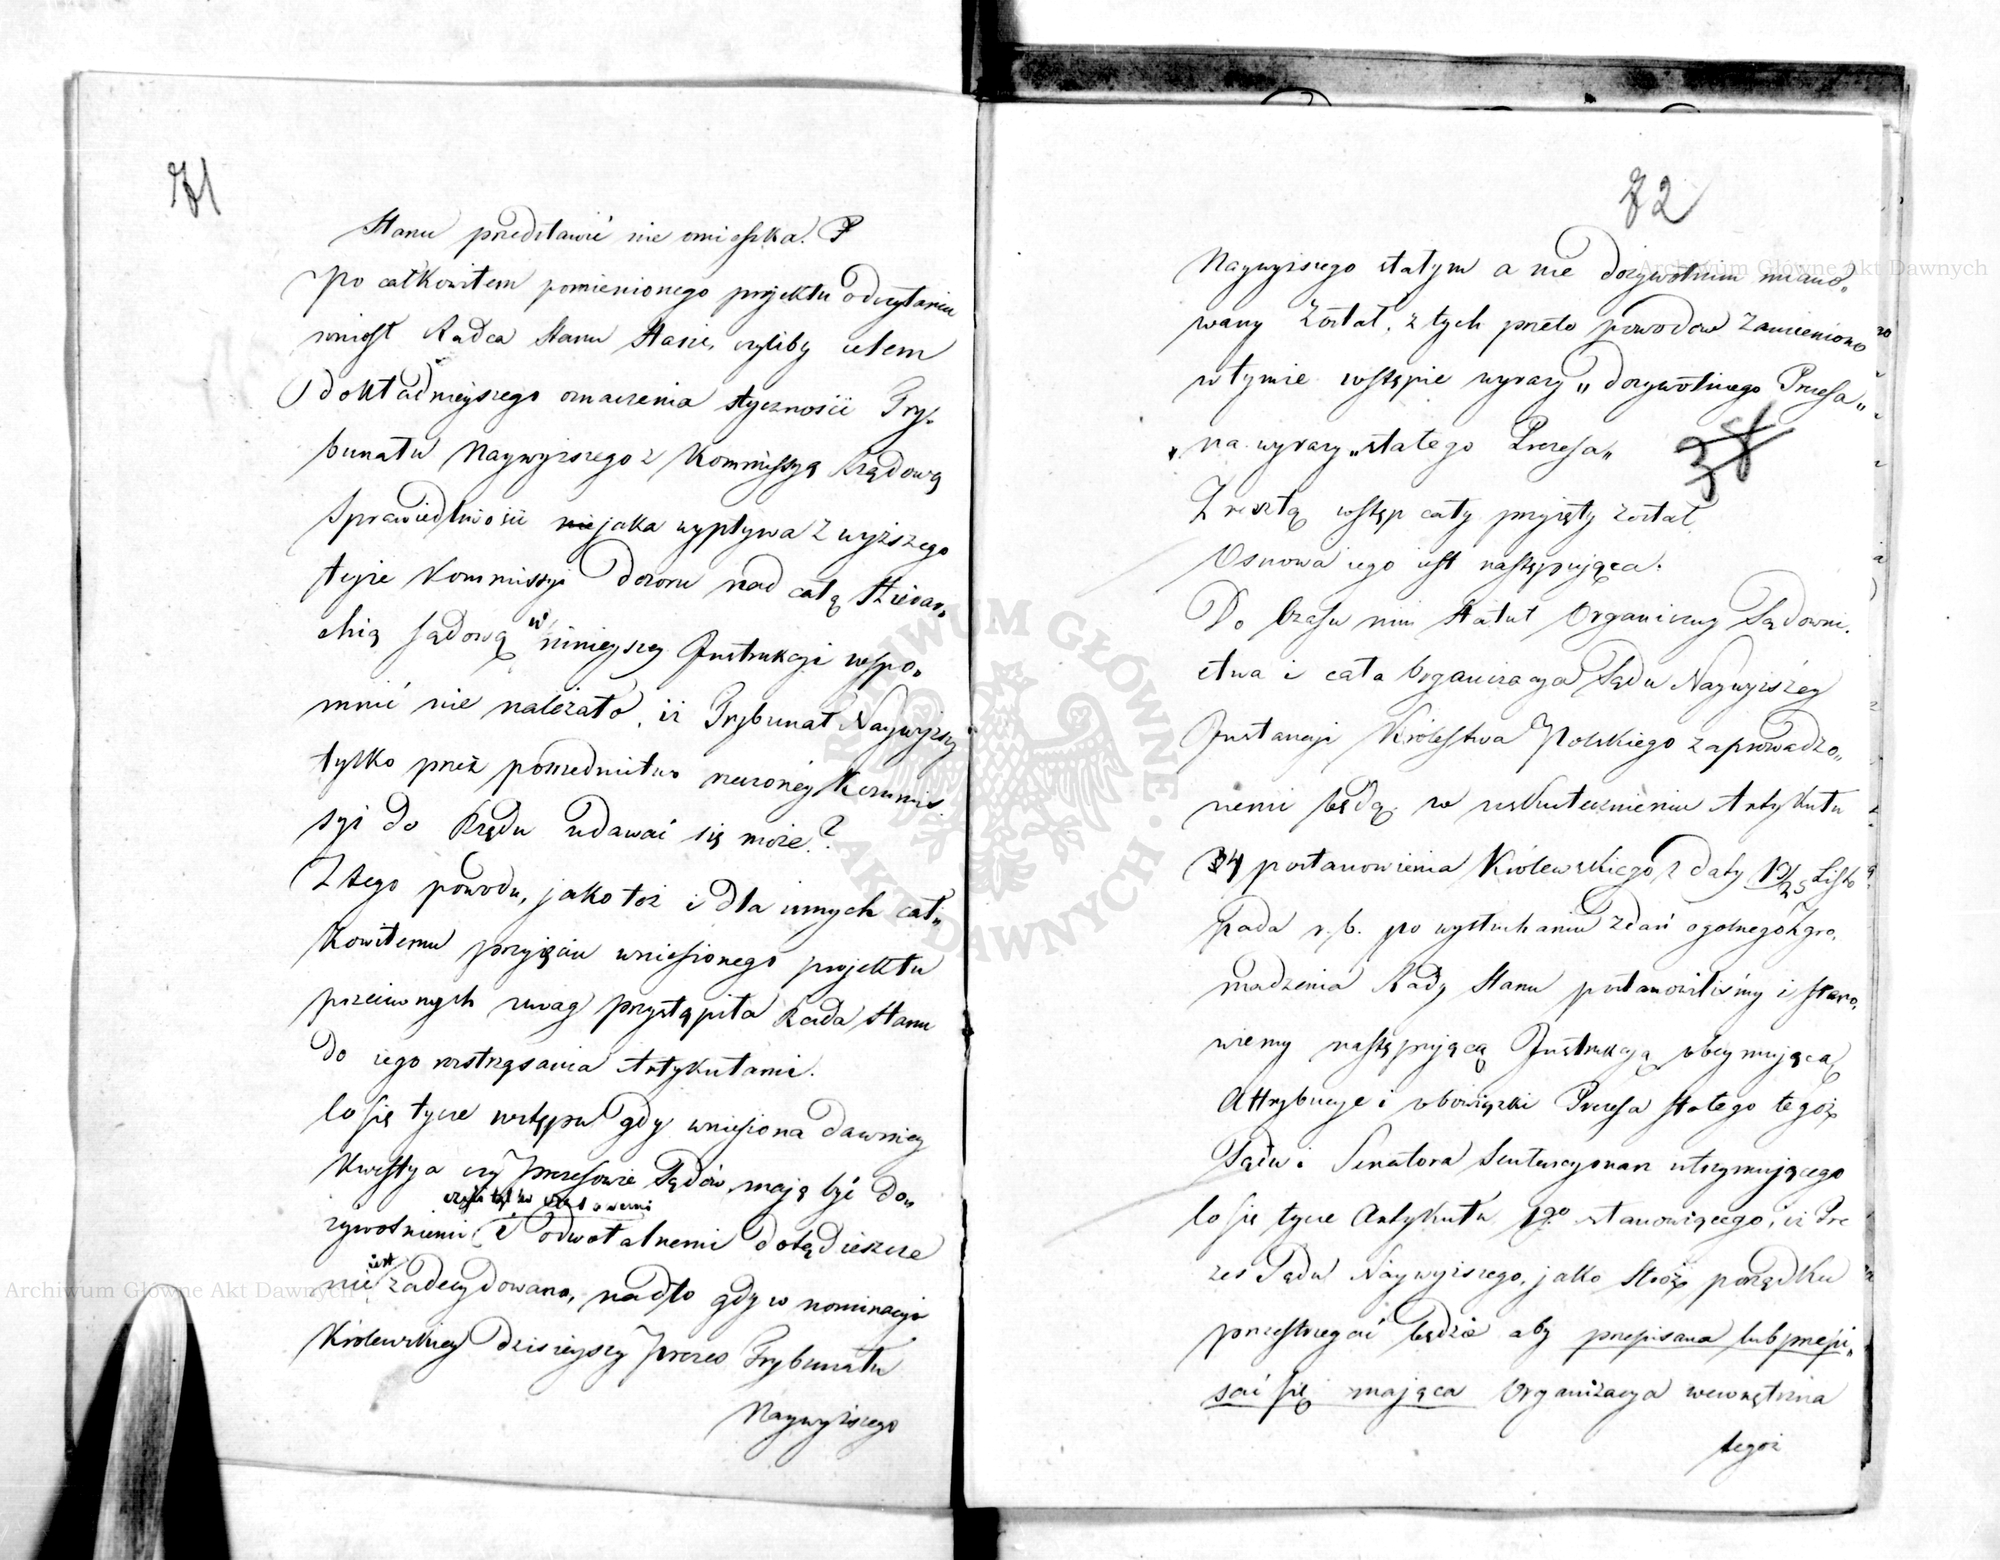 71
Stanu przedstawić nie omieszka.
Po całkowitem pomienionego projektu odczytaniu
wniosł Radca Stanu Staszic, czyliby celem
dokładnieyszego oznaczenia styczności Try„
bunału Naywyższego z Kommissyą Rządową
Sprawiedliwości jaka wypływa z wyższego
teyże Kommissyi dozoru nad całą Hierar„
chią sądową w ninieyszey Instrukcyi wspo„
mnić nie należało, iż Trybunał Naywyższy
tylko przez posrednictwo rzeczoney Kommis
syi do Rządu udawać się może?
Z tego powodu, jako też i dla innych cał„
kowitemu przyięciu wniesionego projektu
przeciwnych uwag przystąpiła Rada Stanu
do iego roztrząsania Artykułami.
Co się tycze wstępu gdy wniesiona dawniey
Kwestya czy Prezesowie Sądów mają być do„
czyli też
żywotniemi i odwołalnemi dotąd ieszcze
iest
nie zadecydowana, nadto gdy w nominacyi
Królewskiey dzisieyszy Prezes Trybunału
Naywyższego
72
Naywyższego stałym a nie dożywotnim miano„
wany został, z tych przeto powodow zamieniono
w tymże wstępie wyrazy „dożywotniego Prezesa„
na wyrazy „stałego Prezesa„
Zresztą wstęp cały przyięty został
Osnowa iego iest następująca.
Do Czasu nim Statut Organiczny Sądowni„
ctwa i cała Organizacya Sądu Naywyższey
Instancyi Królestwa Polskiego zaprowadzo„
nemi będą, w uskutecznieniu Artykułu
34 postanowienia Królewskiego z daty 13/25 Listo
pada r. b. po wysłuchaniu zdań ogolnego Zgro„
madzenia Rady Stanu postanowiliśmy i stano„
wiemy następującą Instrukcyą obeymującą
Attrybucye i obowiązki Prezesa stałego tegoż
Sądu i Senatora Sentencyonarz utrzymującego
Co się tycze Artykułu 1go stanowiącego, iż Pre
zes Sądu Naywyższego, jako Stróż porządku
przestrzegać będzie aby przepisana lub przepi„
sać się mająca Organizacya wewnętrzna
tegoż
Archiwum Główne Akt Dawnych
Archiwum Główne Akt Dawnych
ARCHIWUM GŁÓWNE AKT DAWNYCH